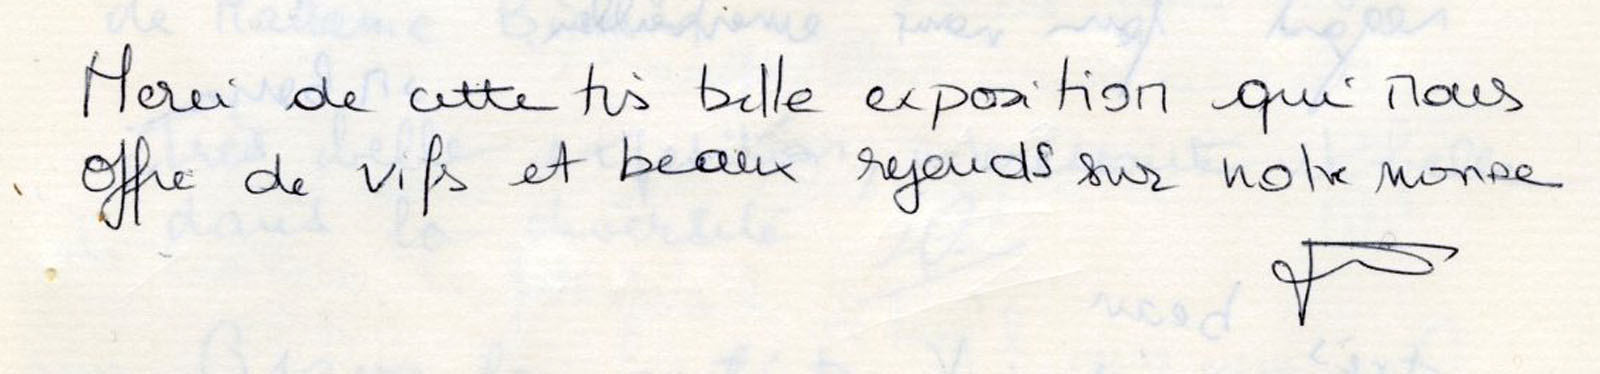 Merci de cette très belle exposition qui nous
offre de vifs et beaux regards sur notre monde